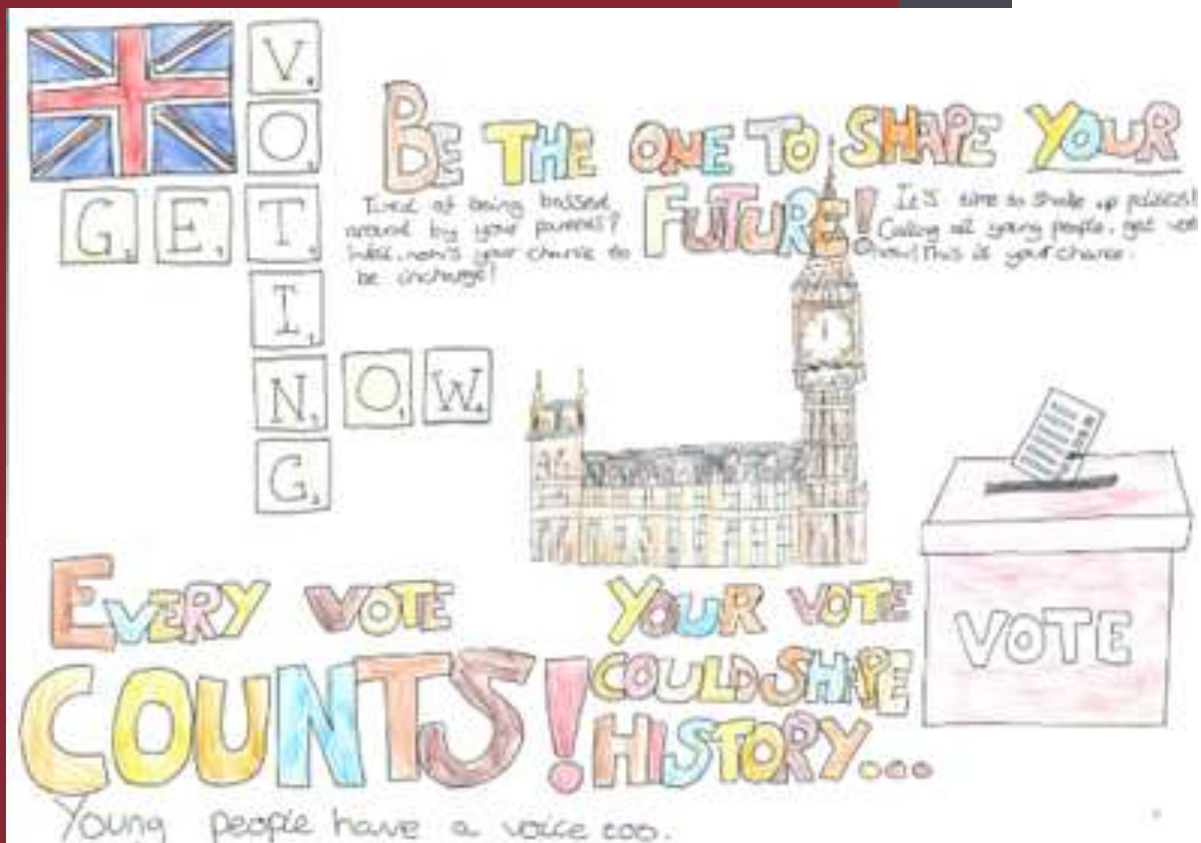 VOTING
GET
NOW
BE THE ONE TO SHAPE YOUR
FUTURE!
Tired of being bossed
around by your parents?
Well, now's your chance to
be incharge!
It's time to shake up politics!
Calling all young people, get
now! This is your chance.
VOTE
EVERY VOTE
COUNTS!
YOUR VOTE
COULD SHAPE
HISTORY...
Young people have a voice too.